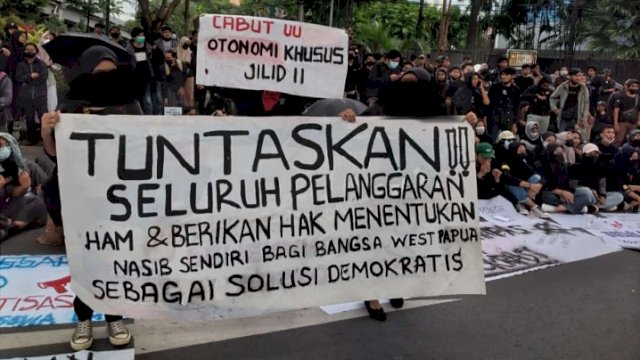 CABUT UU
OTONOMI KHUSUS
JILID II
TUNTASKAN!!!
SELURUH PELANGGARAN
HAM & BERIKAN HAK MENENTUKAN
NASIB SENDIRI BAGI BANGSA WEST PAPUA
SEBAGAI SOLUSI DEMOKRATIS